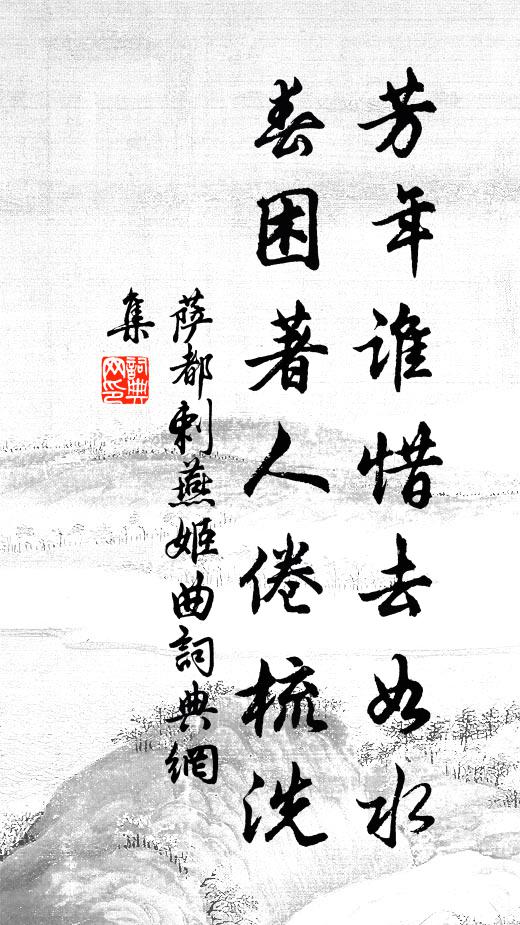 芳年谁惜去如水
春困著人倦梳洗
萨都剌燕姬曲词典网
集
詞典网印